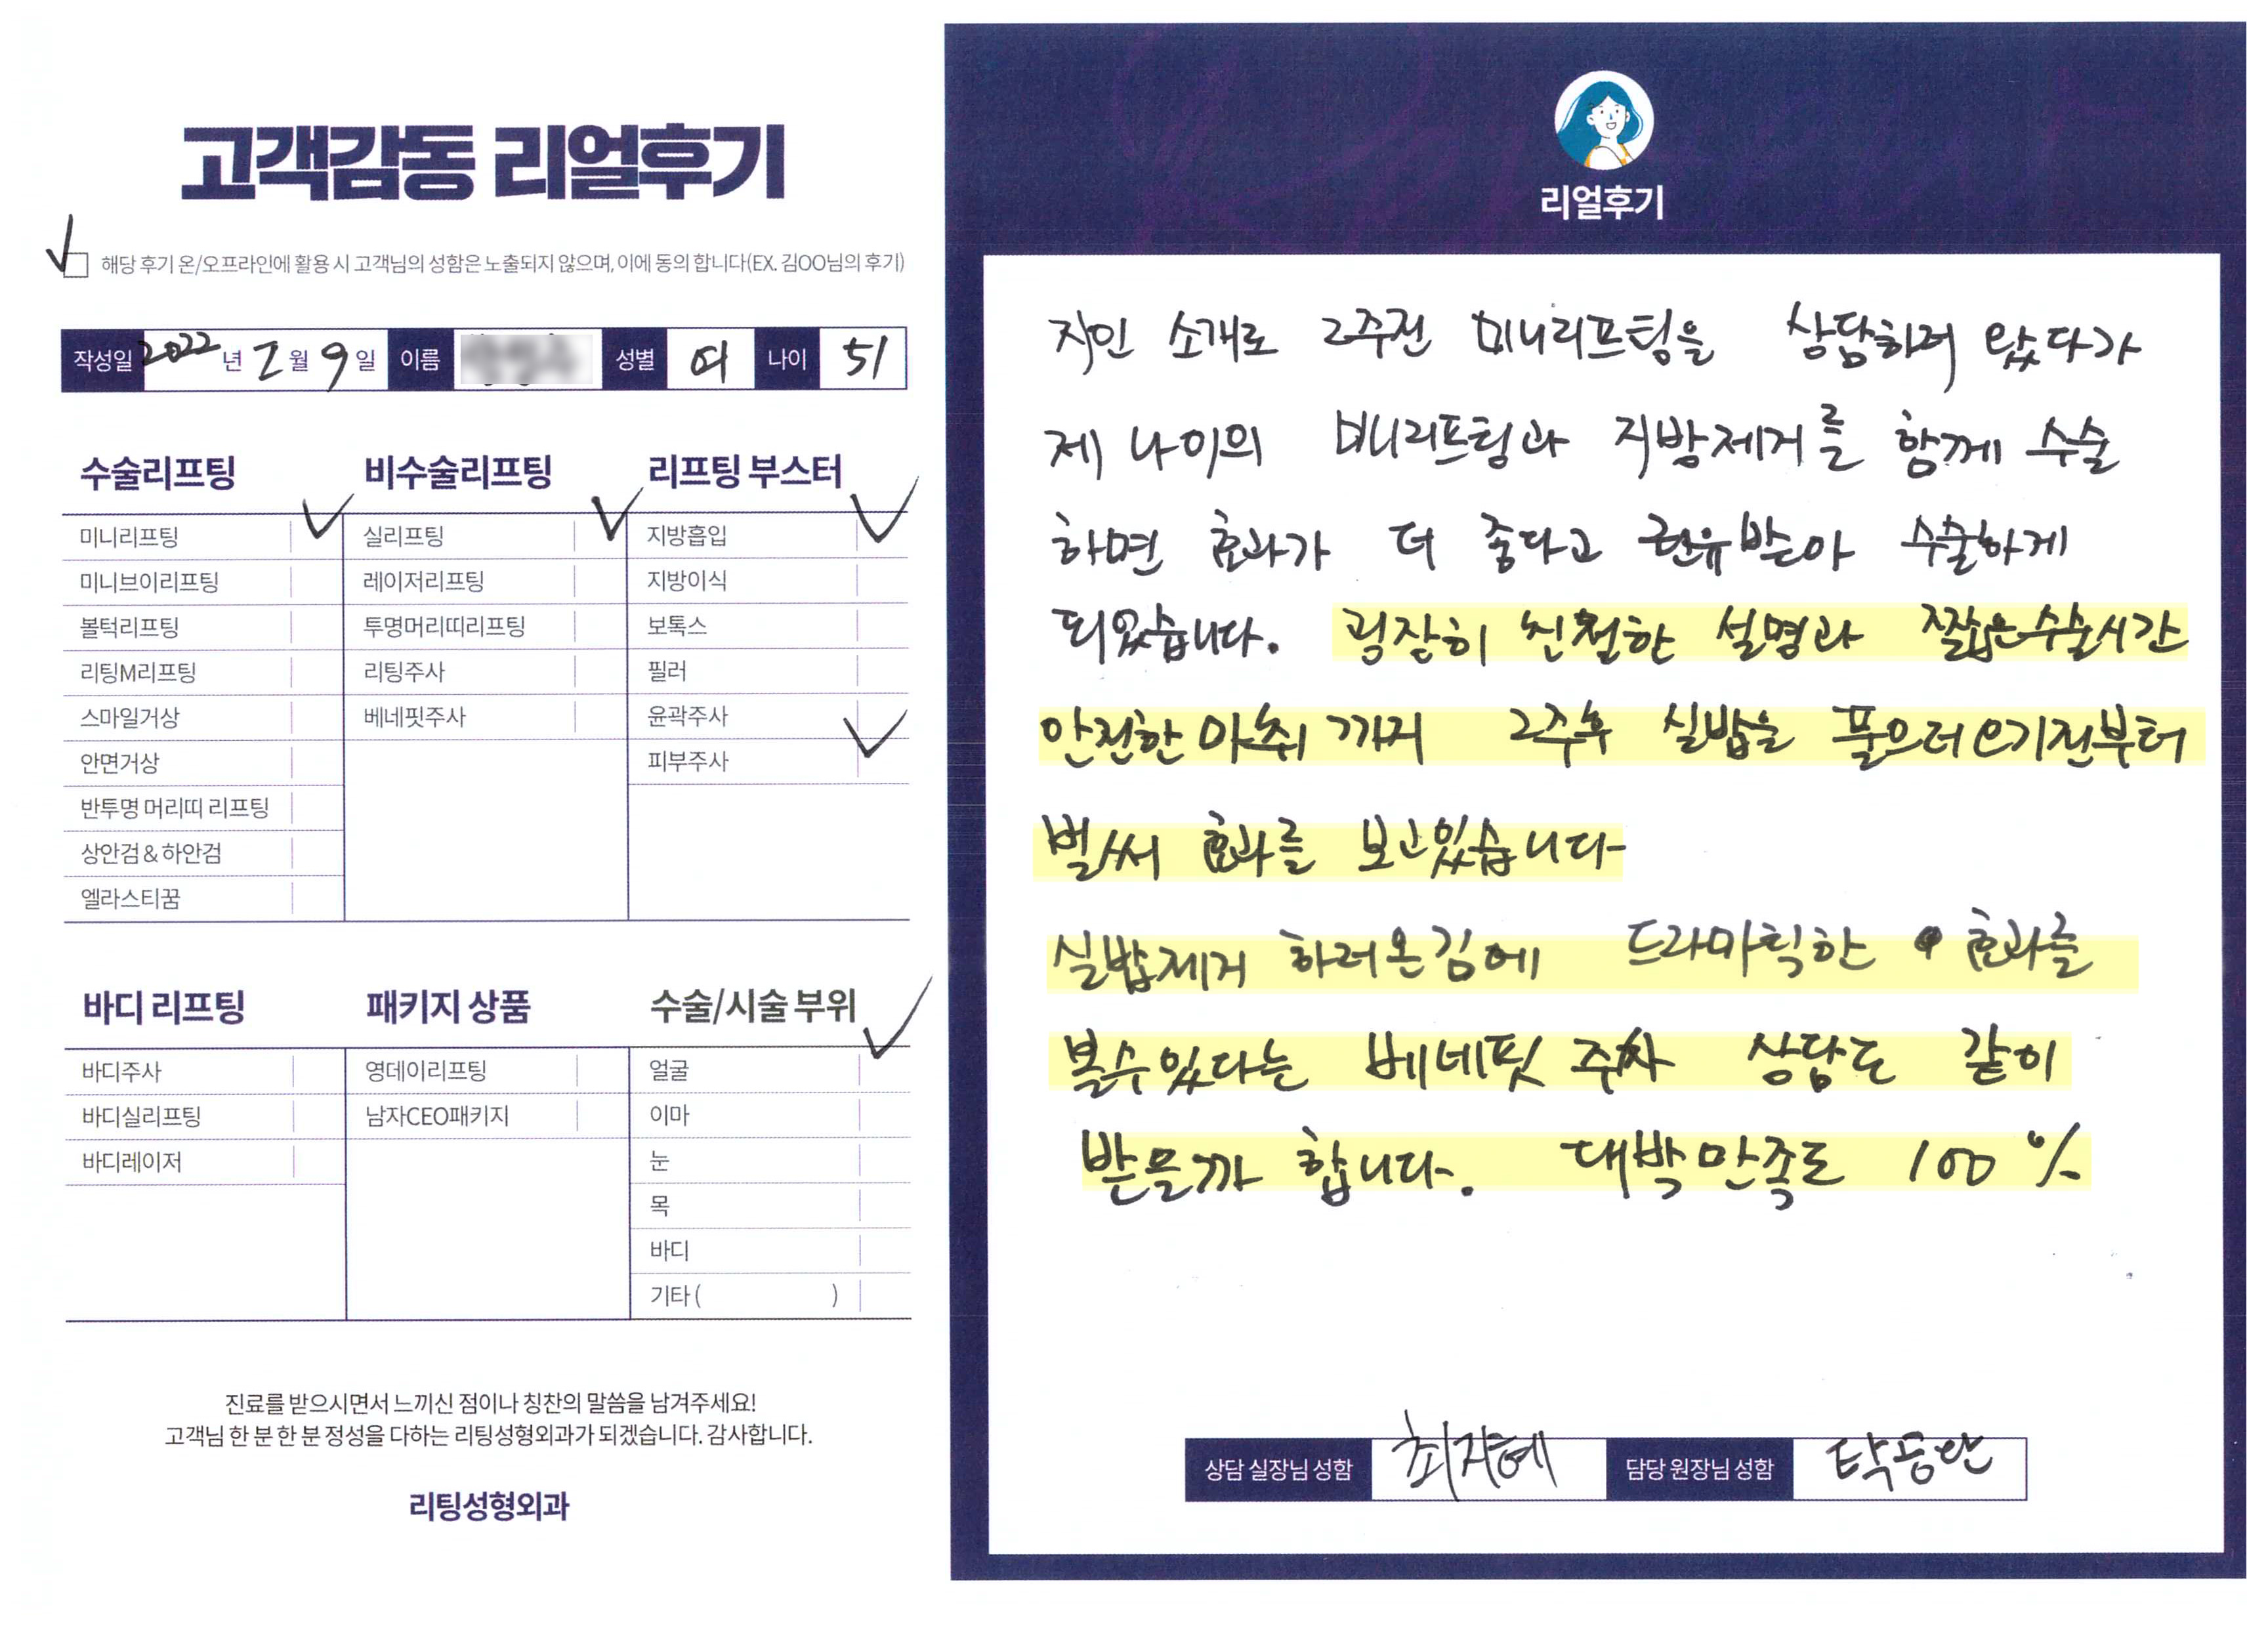 고객감동 리얼후기
해당 후기 온/오프라인에 활용 시 고객님의 성함은 노출되지 않으며, 이에 동의 합니다(EX. 김OO님의 후기)
작성일 2022 년 2 월 9 일 이름 성별 여 나이 51
수술리프팅 비수술리프팅 리프팅 부스터
미니리프팅 실리프팅 지방흡입
미니브이리프팅 레이저리프팅 지방이식
볼턱리프팅 투명머리띠리프팅 보톡스
리팅M리프팅 리팅주사 필러
스마일거상 베네핏주사 윤곽주사
안면거상 피부주사
반투명 머리띠 리프팅
상안검 & 하안검
엘라스티꿈
바디 리프팅 패키지 상품 수술/시술 부위
바디주사 영데이리프팅 얼굴
바디실리프팅 남자CEO패키지 이마
바디레이저 눈
목
바디
기타 ( )
진료를 받으시면서 느끼신 점이나 칭찬의 말씀을 남겨주세요!
고객님 한 분 한 분 정성을 다하는 리팅성형외과가 되겠습니다. 감사합니다.
리팅성형외과
리얼후기
지인 소개로 2주전 미니리프팅을 상담하러 왔다가
제 나이의 미니리프팅과 지방제거를 함께 수술
하면 효과가 더 좋다고 권유받아 수술하게
되었습니다. 굉장히 친절한 설명과 짧은수술시간
안전한 마취 까지 2주후 실밥을 풀으러 오기전부터
벌써 효과를 보고있습니다
실밥제거 하러온김에 드라마틱한 효과를
볼수있다는 베네핏 주사 상담도 같이
받을까 합니다. 대박만족도 100 %
상담 실장님 성함 최지혜 담당 원장님 성함